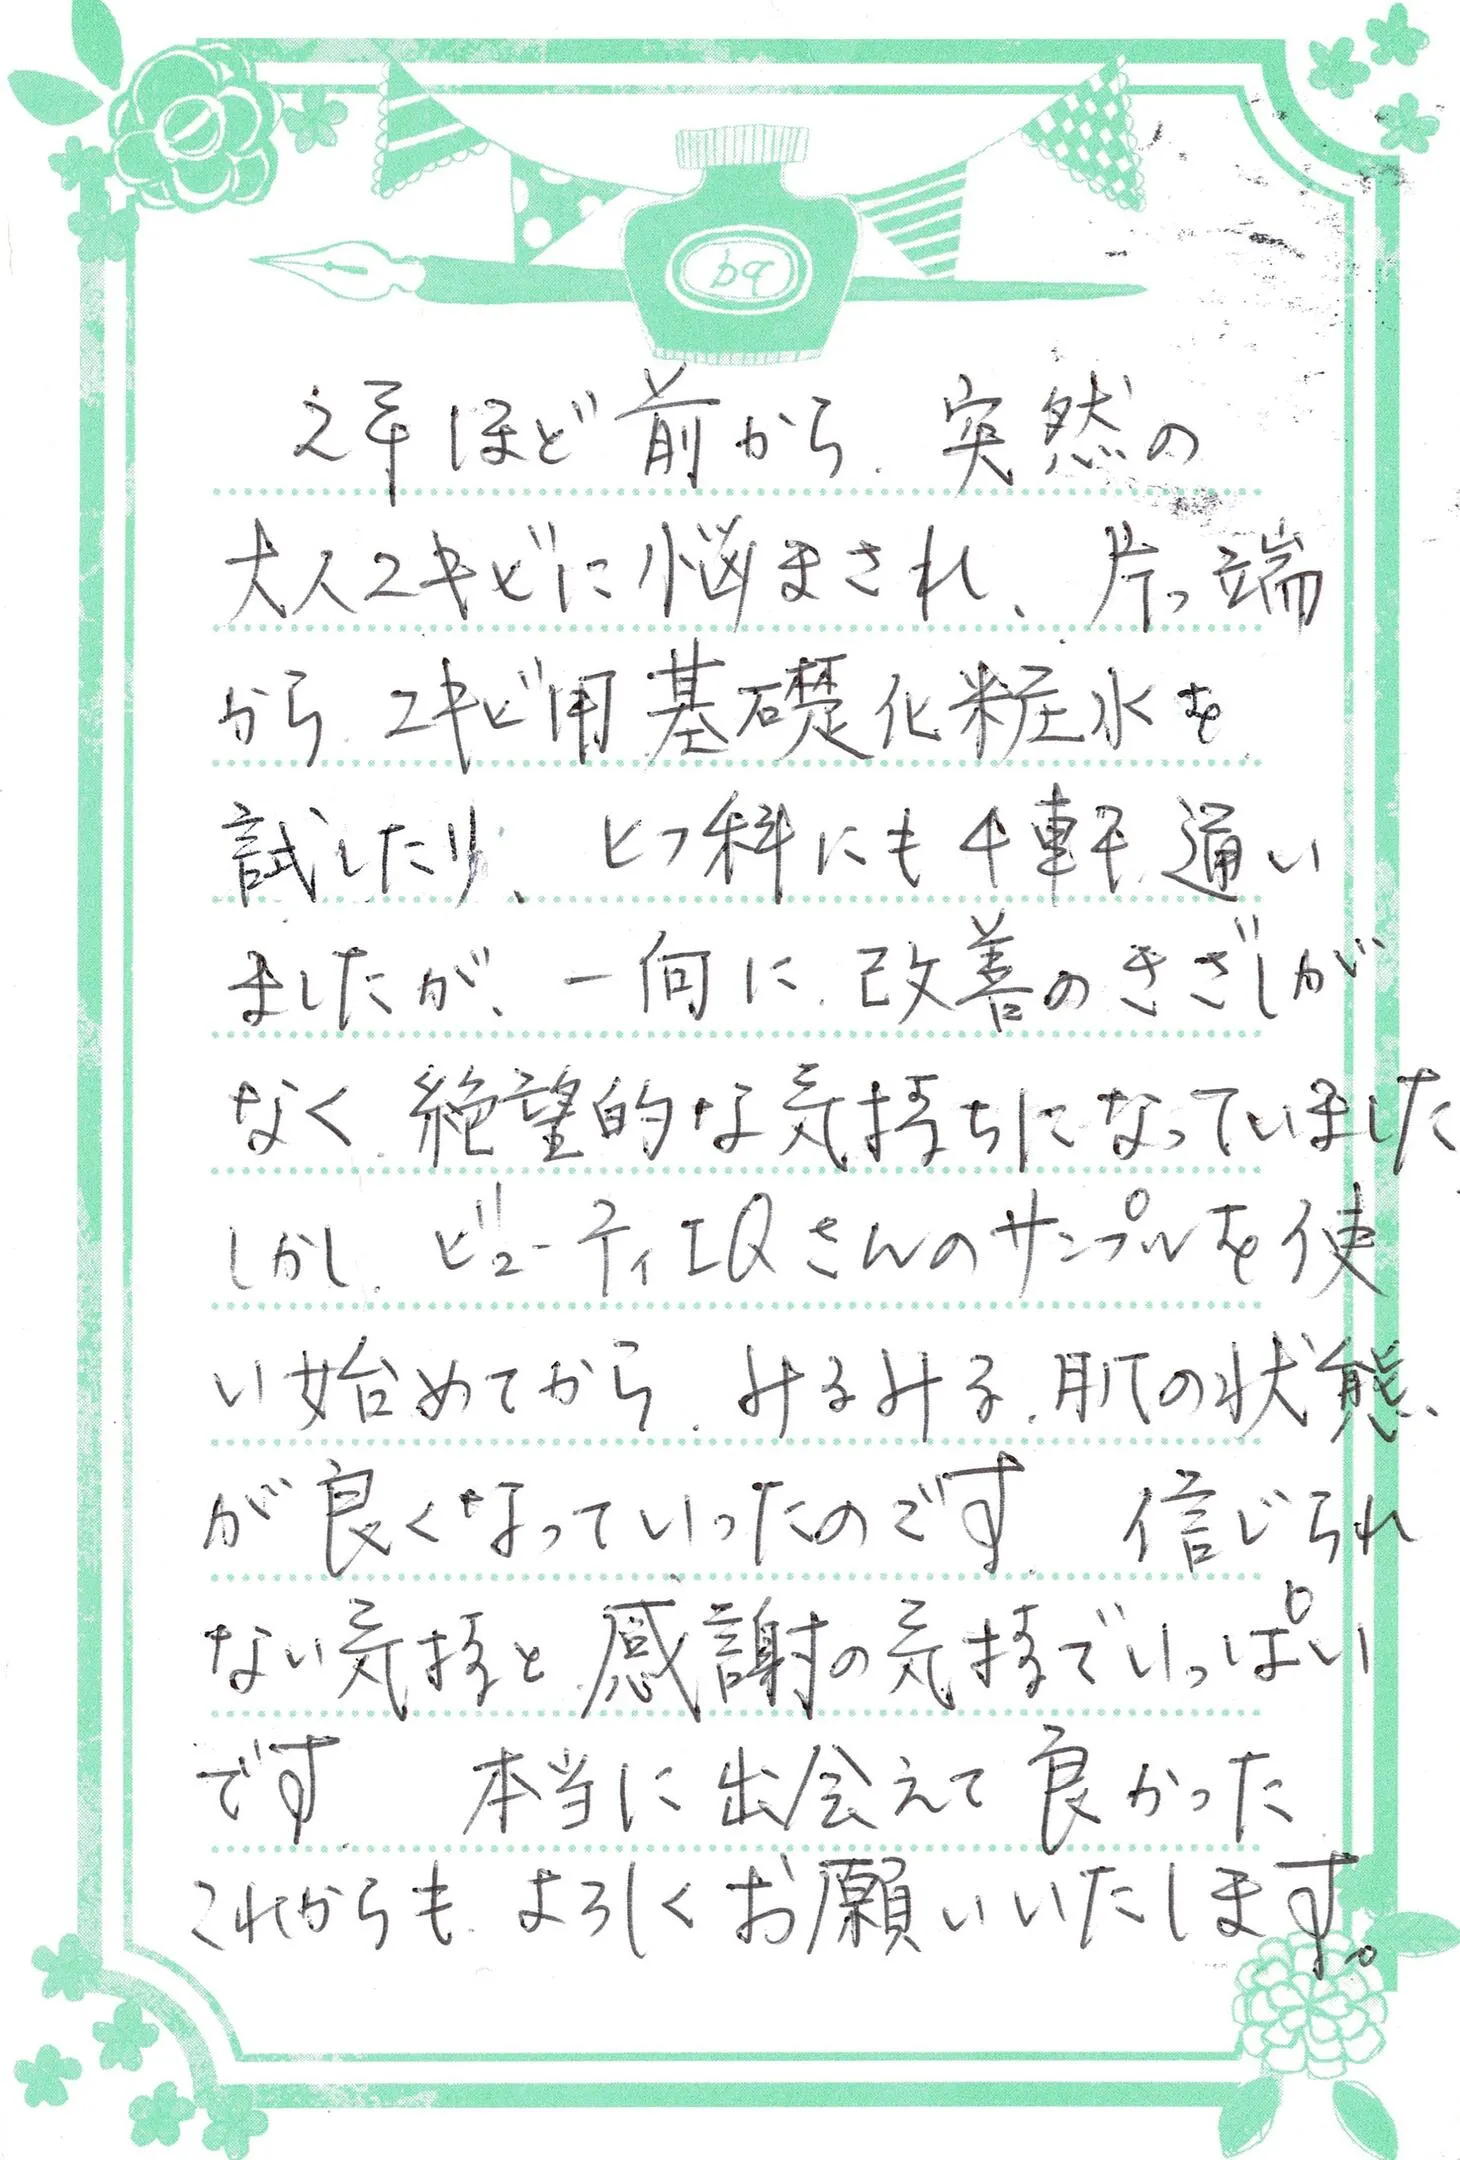 bq
2年ほど前から、突然の
大人ニキビに悩まされ、片っ端
から、ニキビ用基礎化粧水を
試したり、ヒフ科にも4軒、通い
ましたが、一向に、改善のきざしが
なく、絶望的な気持ちになっていました。
しかし、ビューティEQさんのサンプルを使
い始めてから、みるみる、肌の状態、
が良くなっていったのです。信じられ
ない気持と、感謝の気持でいっぱい
です。本当に出会えて良かった。
これからも、よろしくお願いいたします。